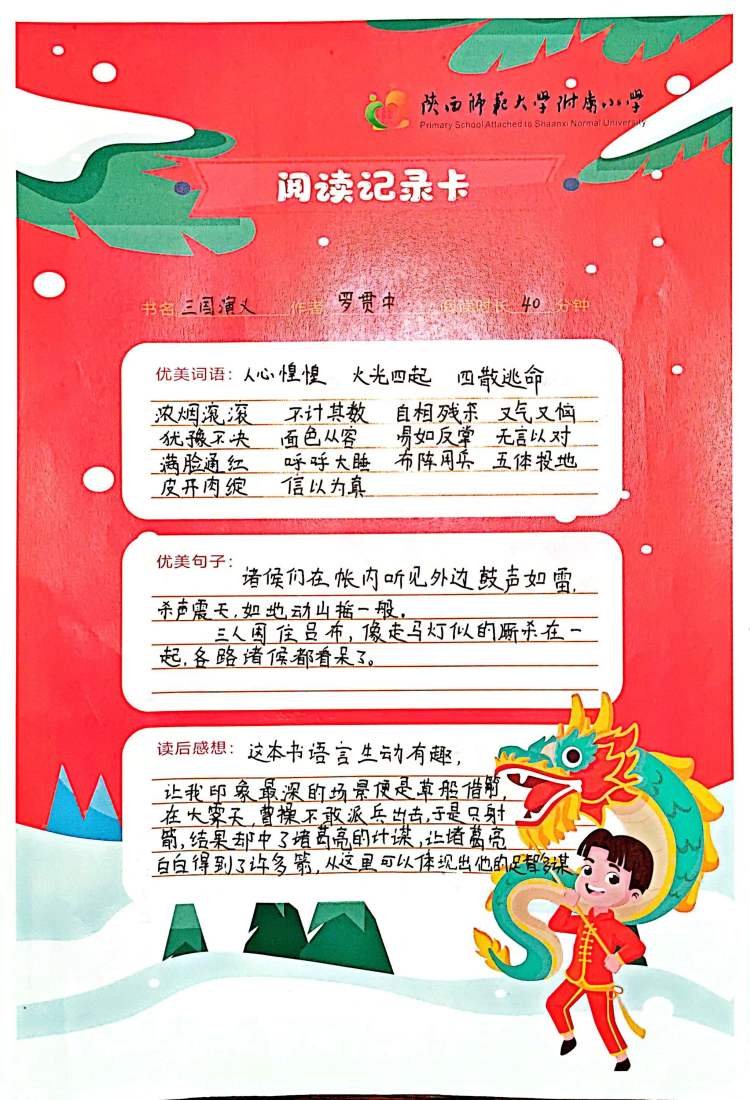 陕西师范大学附属小学
Primary School Attached to Shaanxi Normal University
阅读记录卡
书名 三国演义 作者 罗贯中 阅读时长 40 分钟
优美词语：人心惶惶 火光四起 四散逃命
浓烟滚滚 不计其数 自相残杀 又气又恼
犹豫不决 面色从容 易如反掌 无言以对
满脸通红 呼呼大睡 布阵用兵 五体投地
皮开肉绽 信以为真
优美句子：
诸候们在帐内听见外边鼓声如雷，
杀声震天，如地动山摇一般。
三人围住吕布，像走马灯似的厮杀在一
起，各路诸候都看呆了。
读后感想：这本书语言生动有趣，
让我印象最深的场景便是草船借箭，
在大雾天，曹操不敢派兵出击，于是只射
箭，结果却中了诸葛亮的计谋，让诸葛亮
白白得到了许多箭，从这里可以体现出他的足智多谋